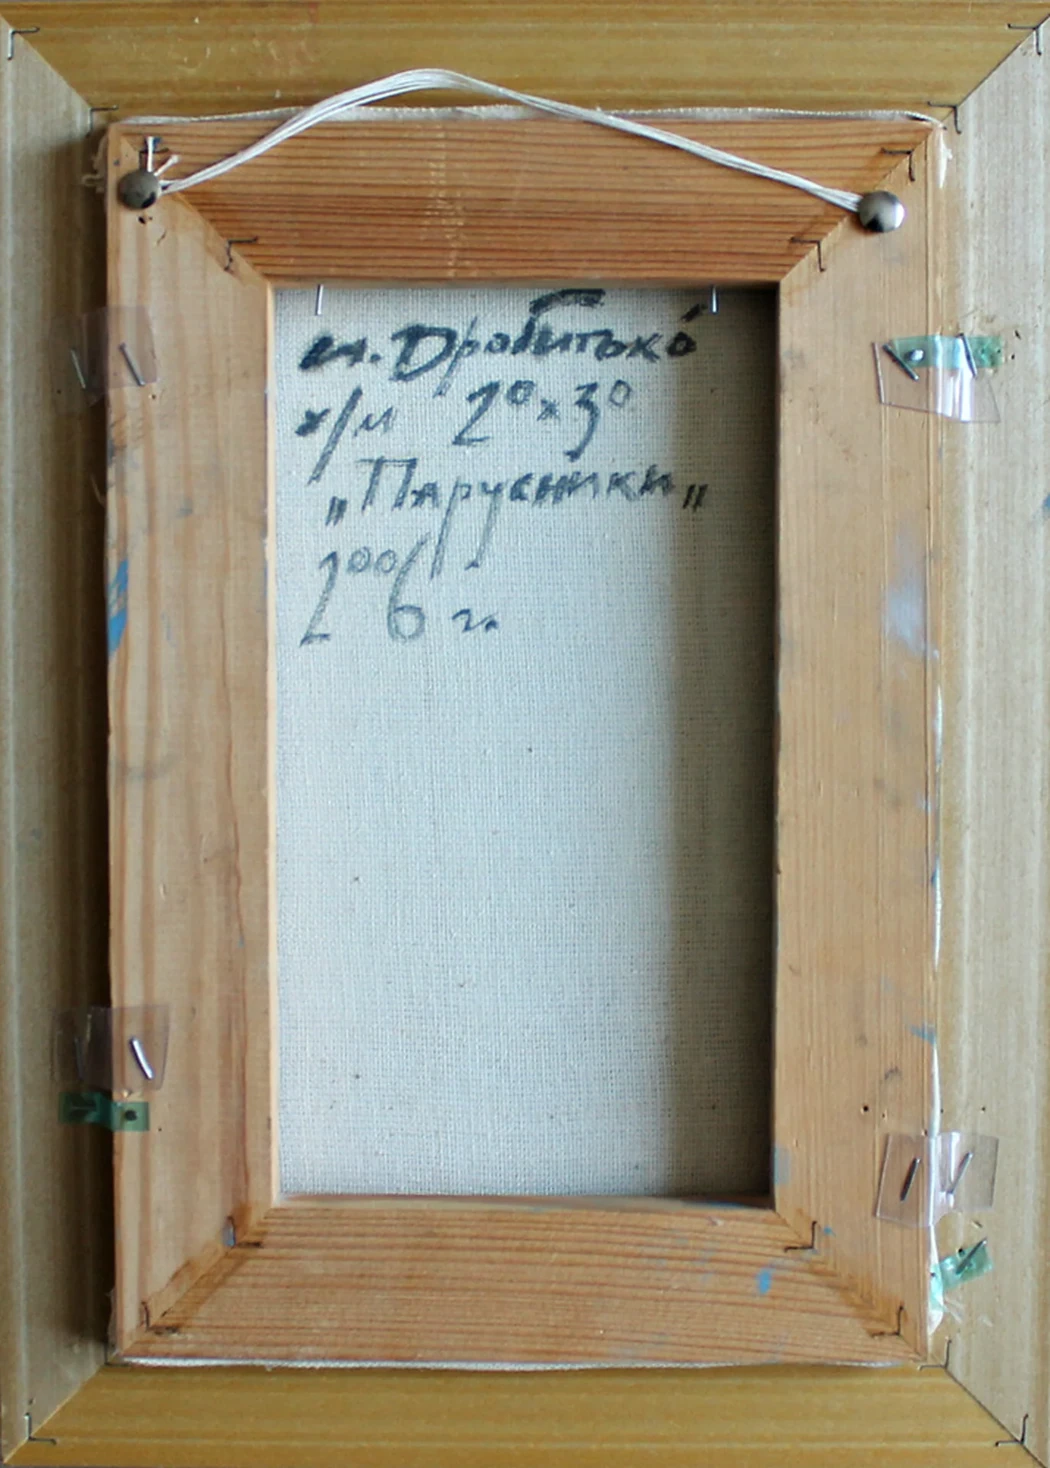 м. Дробитько
х/м 20х30
„Парусники„
2006 г.